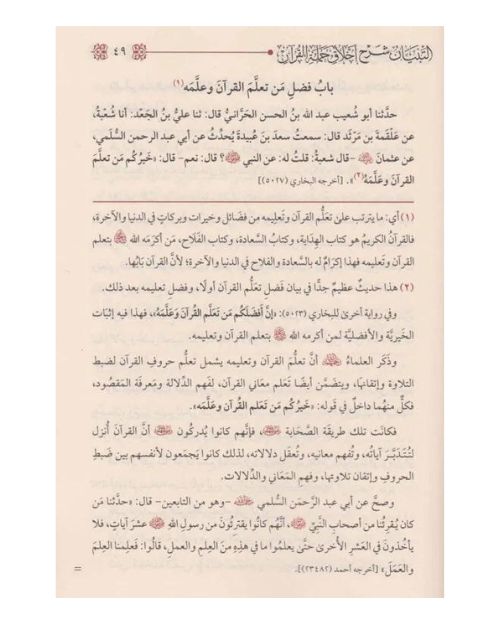 التبيان شرح أخلاق حملة القرآن
٤٩
بابُ فضلِ مَن تعلَّمَ القرآنَ وعلَّمَه(١)
حدَّثنا أبو شُعيب عبد الله بنُ الحسن الحَرَّانيُّ قال: ثنا عليُّ بنُ الجَعْد: أنا شُعبةُ،
عن عَلقَمةَ بن مَرْثَد قال: سمعتُ سعدَ بنَ عُبيدةَ يُحدِّثُ عن أبي عبد الرحمن السُّلَمي،
عن عثمانَ -قال شعبةُ: قلتُ له: عن النبي ﷺ؟ قال: نعم- قال: «خَيرُكُم مَن تعلَّمَ
القرآنَ وعَلَّمَهُ(٢)». [أخرجه البخاري (٥٠٢٧)]
(١) أي: ما يترتب على تعلُّم القرآن وتعليمه من فضائل وخيرات وبركات في الدنيا والآخرة،
فالقرآنُ الكريمُ هو كتاب الهِدَاية، وكتابُ السعادة، وكتاب الفَلَاح، مَن أكرَمَه الله بتعلم
القرآن وتعليمه فهذا إكرامٌ له بالسعادة والفلاح في الدنيا والآخرة؛ لأنَّ القرآن بَابُها.
(٢) هذا حديثٌ عظيم جدًّا في بيان فَضلِ تعَلُّم القرآن أولًا، وفضلِ تعليمه بعد ذلك.
وفي رواية أخرى للبخاري (٥٠٢٣): «إنَّ أَفضَلَكُم مَن تَعَلَّم القُرآنَ وعَلَّمَهُ»، فهذا فيه إثبَات
الخَيريَّة والأفضليَّة لمن أكرمه الله بتعلم القرآن وتعليمه.
وذكَر العلماءُ أنَّ تعلُّمَ القرآن وتعليمه يشمل تعلُّم حروفِ القرآن لضبط
التلاوة وإتقانها، ويتضمَّن أيضًا تَعلم معاني القرآن، لفَهم الدِّلالة ومَعرفة المَقصُود،
فكلٌّ منهُما داخلٌ في قوله: «خَيرُكُم مَن تَعَلم القُرآن وعلَّمه».
فكانَت تلك طريقَة الصَّحَابة، فإنَّهم كانوا يُدركُون أنَّ القرآنَ أُنزل
لتُتدَبَّـرَ آياتُه، وتُفهم معانيه، وتُعقَل دلالاته، لذلك كانوا يَجمَعون لأنفسهم بين ضَبطِ
الحروفِ وإتقان تلاوتها، وفهمِ المَعَاني والدِّلالات.
وصحَّ عن أبي عبد الرَّحمَن السُّلمي -وهو من التابعين- قال: «حدَّثنا مَن
كان يُقرِئُنا من أصحابِ النَّبيِّ ﷺ، أنَّهم كانُوا يقتَرِئُونَ من رسولِ اللهِ ﷺ عشرَ آياتٍ، فلا
يأخذُونَ في العَشرِ الأُخرَى حتَّى يعلَموا ما في هذِهِ منَ العِلمِ والعملِ، قالُوا: فَعلِمنا العِلمَ
والعَمَلَ» [أخرجه أحمد (٢٣٤٨٢)].
=